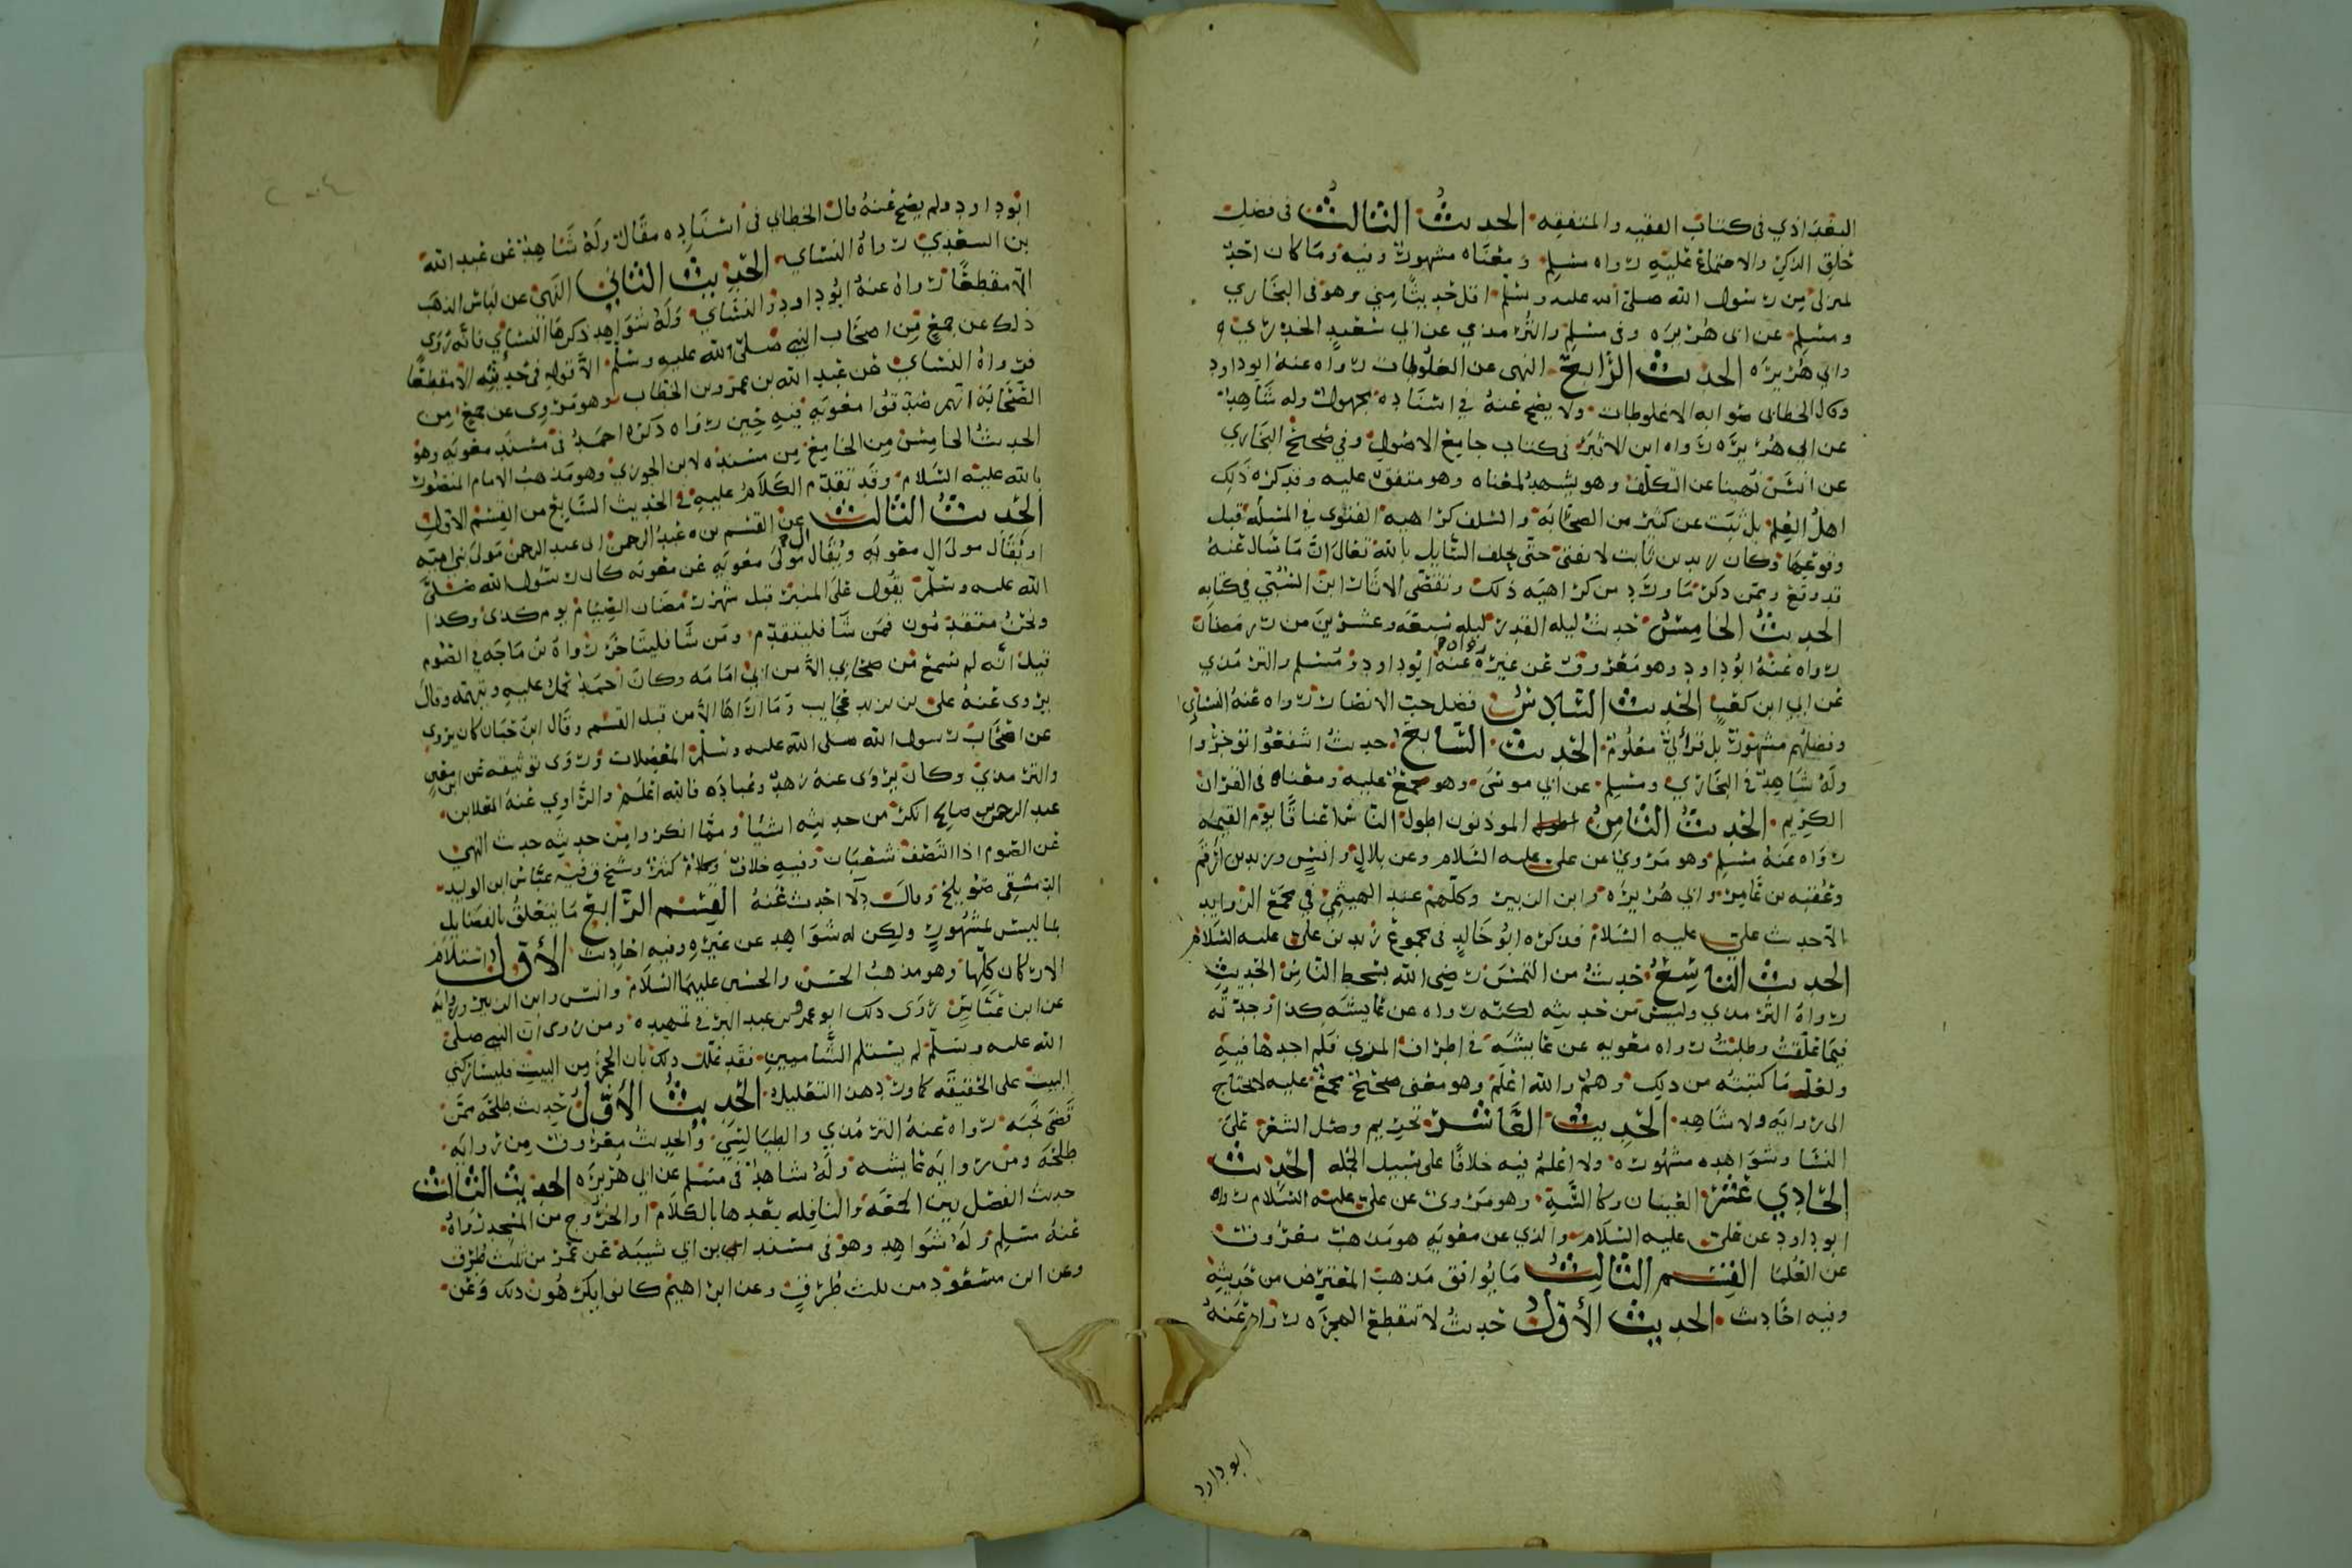 البغدادي في كتاب الفقيه والمتفقه الحديث الثالث في فضل
خلق الذكر والاجتماع عليه رواه مسلم ومعناه مشهور وفيه وما كان احد
بمنزلتي من رسول الله صلى الله عليه وسلم اقل حديثا مني وهو في البخاري
ومسلم عن ابي هريره وفي مسلم والترمذي عن ابي سعيد الخدري
وابي هريره الحديث الرابع النهي عن الغلوطات رواه عنه ابو داود
وقال الخطابي صوابه الاغلوطات ولا يصح عنه في اسناده مجهول وله شاهد
عن ابي هريره رواه ابن الاثير في كتاب جامع الاصول وفي صحيح البخاري
عن انس نهينا عن التكلف وهو يشهد لمعناه وهو متفق عليه وقد كره ذلك
اهل العلم بل ثبت عن كثير من الصحابه والسلف كراهيه الفتوى في المسله قبل
وقوعها وكان زيد بن ثابت لا يفتي حتى يحلف السايل بالله تعالى ان ما سال عنه
قد وقع وممن ذكر ما ورد من كراهيه ذلك وتقصى الاثار ابن السني في كتابه
الحديث الخامس حديث ليله القدر ليله سبعه وعشرين من رمضان
رواه عنه ابو داود وهو معروف عن غيره رواه عنه ابو داود ومسلم والترمذي
عن ابي ابن كعب الحديث السادس فضل حب الانصار رواه عنه النساي
وفضلهم مشهور بل قرأني معلوم الحديث السابع حديث اشفعوا توجروا
وله شاهد في البخاري ومسلم عن ابي موسى وهو مجمع عليه ومعناه في القران
الكريم الحديث الثامن الموذنون اطول الناس اعناقا يوم القيمه
رواه عنه مسلم وهو مروي عن علي عليه السلام وعن بلال وانس وزيد بن ارقم
وعقبه بن عامر وابي هريره وابن الزبير وكلهم عند الهيثمي في مجمع الزوايد
الا حديث علي عليه السلام فذكره ابو خالد في مجموع زيد بن علي عليه السلام
الحديث التاسع حديث من التمس رضى الله بسخط الناس الحديث
رواه الترمذي وليس من حديثه لكنه رواه عن عايشه كذا وجدته
فيما علقت وطلبت رواه معويه عن عايشه في اطراف المزي فلم اجدها فيه
ولعل ما كتبته من ذلك وهم والله اعلم وهو معنى صحيح مجمع عليه لا يحتاج
الى روايه ولا شاهد الحديث العاشر تحريم وصل الشعر على
النسا وشواهده مشهوره ولا اعلم فيه خلافا على سبيل الجمله الحديث
الحادي عشر العينان وكا السه وهو مروي عن علي عليه السلام رواه
ابو داود عن علي عليه السلام والذي عن معويه هو مذهب معروف
عن العلما القسم الثالث ما يوافق مذهب المعترض من حديثه
وفيه احاديث الحديث الاول حديث لا تنقطع الهجره رواه عنه
ابو داود
ابو داود ولم يصح عنه قال الخطابي في اسناده مقال وله شاهد عن عبد الله
بن السعدي رواه النساي الحديث الثاني النهي عن لباس الذهب
الا مقطعا رواه عنه ابو داود والنساي وله شواهد ذكرها النساي فانه روى
ذلك عن جمع من اصحاب النبي صلى الله عليه وسلم الا قوله في حديثه الا مقطعا
فرواه النساي عن عبد الله بن عمر وبن الخطاب وهو مروى عن جمع من
الصحابه انهم صدقوا معويه فيه حين رواه ذكره احمد في مسند معويه وهو
الحديث الخامس من الجامع من مسنده لابن الجوزي وهو مذهب الامام المنصور
بالله عليه السلام وقد تقدم الكلام عليه في الحديث السابع من القسم الاول
الحديث الثالث عن القسم بن عبد الرحمن ابي عبد الرحمن مولى بني اميه
او يقال مولى ال معويه ويقال مولى معويه عن معويه كان رسول الله صلى
الله عليه وسلم يقول على المنبر قبل شهر رمضان الصيام يوم كذى وكذا
ونحن متقدمون فمن شا فليتقدم ومن شا فليتاخر رواه بن ماجه في الصوم
قيل انه لم يسمع من صحابي الا من ابي امامه وكان احمد يحمل عليه ويتهمه وقال
يروى عنه علي بن يزيد عجايب وما اراها الا من قبل القسم وقال ابن حبان كان يروي
عن اصحاب رسول الله صلى الله عليه وسلم المعضلات وروى توثيقه عن ابن معين
والترمذي وكان يروى عنه زهد وعباده فالله اعلم والراوي عنه العلا بن
عبد الرحمن صالح انكر من حديثه اشيا ومما انكروا من حديثه حديث النهي
عن الصوم اذا انتصف شعبان وفيه خلاف وكلام كثير وشيخ فيه عباس ابن الوليد
الدمشقي صويلح وقال د لا احدث عنه القسم الرابع ما يتعلق بالفضايل
بما ليس بمشهور ولكن له شواهد عن غيره وفيه احاديث الأول استلام
الاركان كلها وهو مذهب الحسن والحسين عليهما السلام وانس وابن الزبير وروايه
عن ابن عباس روى ذلك ابو عمر بن عبد البر في تمهيده ومن روى ان النبي صلى
الله عليه وسلم لم يستلم الشاميين فقد علل ذلك بان الحجر من البيت فليسا ركني
البيت على الحقيقه كما ورد هذا التعليل الحديث الأول حديث طلحه ممن
قضى نحبه رواه عنه الترمذي والطيالسي والحديث معروف من روايه
طلحه ومن روايه عايشه وله شاهد في مسلم عن ابي هريره الحديث الثالث
حديث الفصل بين الجمعه والنافله بعدها بالكلام او الخروج من المسجد رواه
عنه مسلم وله شواهد وهو في مسند ابن ابي شيبه عن عمر من ثلث طرق
وعن ابن مسعود من ثلث طرق وعن ابراهيم كانوا يكرهون ذلك وعن